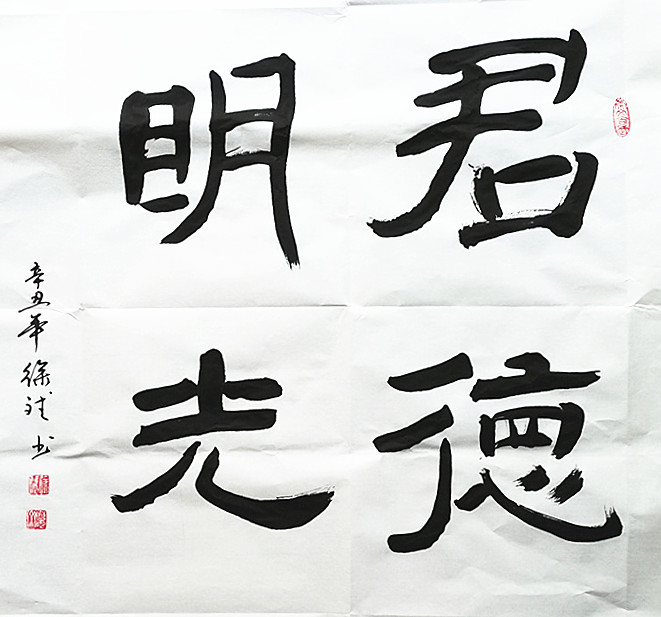 君德
明光
辛丑年徐诚书